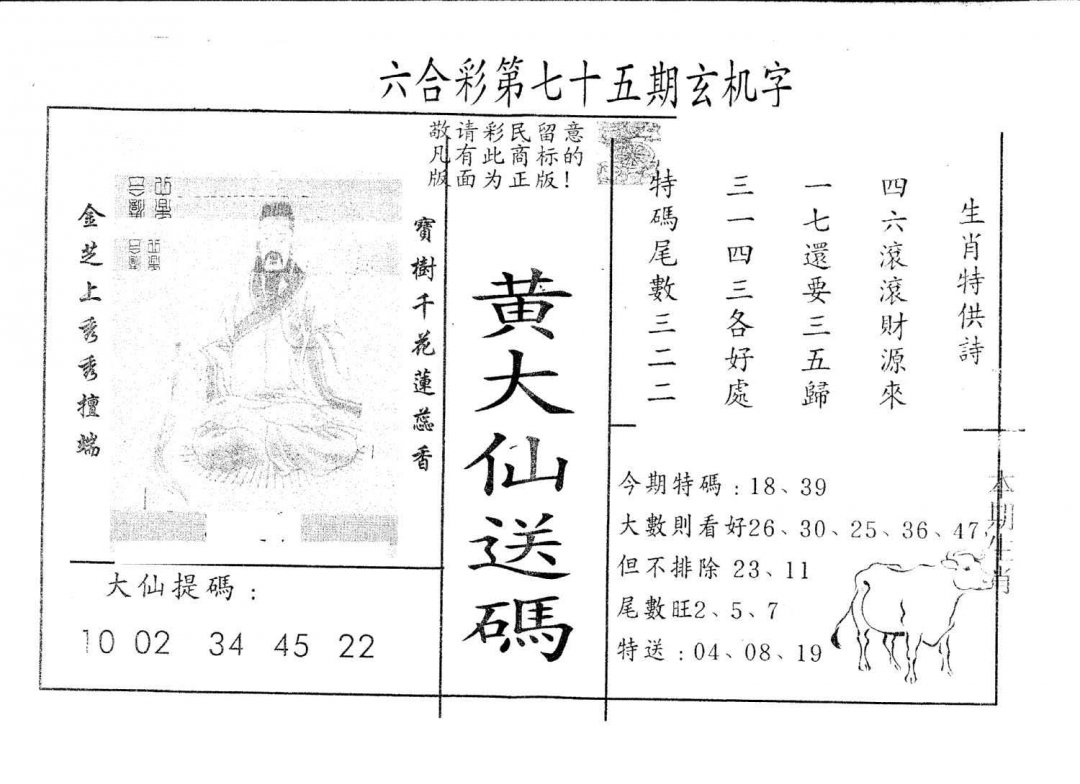 六合彩第七十五期玄机字
敬请彩民留意
凡有此商标的
版面为正版!
金芝上秀秀擅端
寶樹千花蓮蕊香
大仙提碼:
10 02 34 45 22
黄大仙送碼
生肖特供詩
四六滾滾財源來
一七還要三五歸
三一四三各好處
特碼尾數三二二
今期特碼:18、39
大數則看好26、30、25、36、47,
但不排除 23、11
尾數旺2、5、7
特送:04、08、19
本期生肖